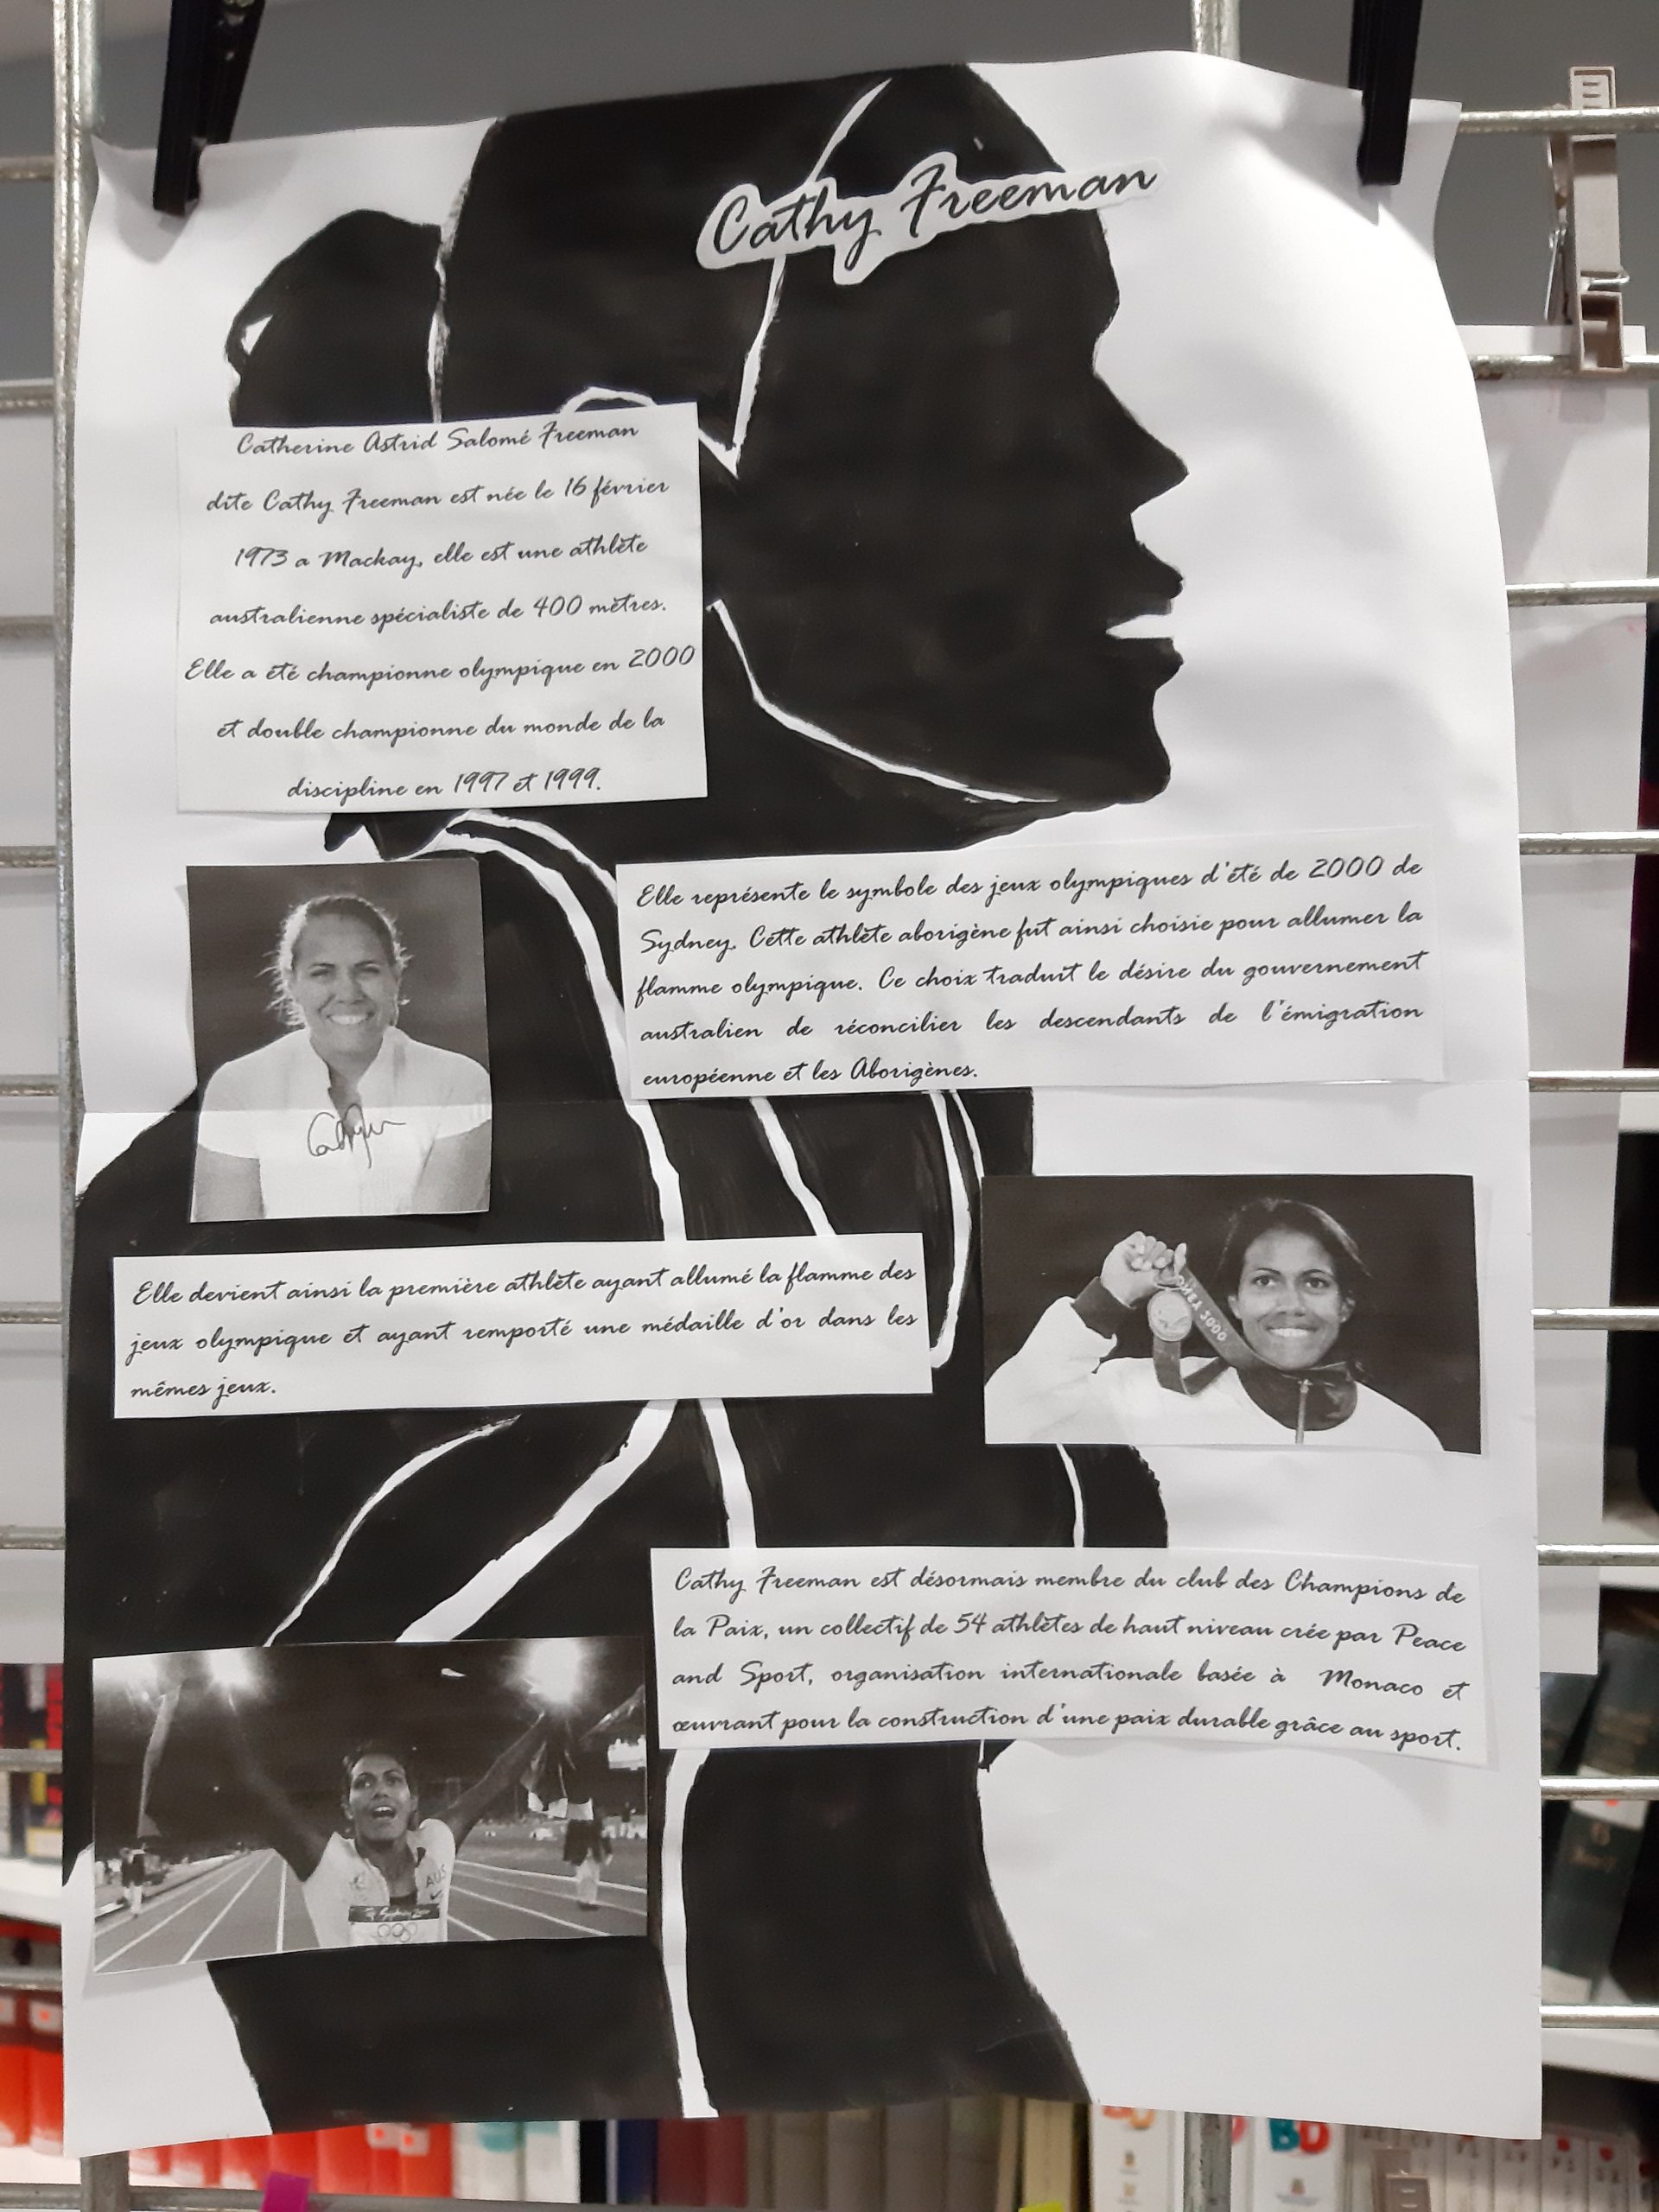 Cathy Freeman
Catherine Astrid Salomé Freeman
dite Cathy Freeman est née le 16 février
1973 a Mackay, elle est une athlète
australienne spécialiste de 400 mètres.
Elle a été championne olympique en 2000
et double championne du monde de la
discipline en 1997 et 1999.
Elle représente le symbole des jeux olympiques d'été de 2000 de
Sydney. Cette athlète aborigène fut ainsi choisie pour allumer la
flamme olympique. Ce choix traduit le désire du gouvernement
australien de réconcilier les descendants de l'émigration
européenne et les Aborigènes.
Elle devient ainsi la première athlète ayant allumé la flamme des
jeux olympique et ayant remporté une médaille d'or dans les
mêmes jeux.
2000
Cathy Freeman est désormais membre du club des Champions de
la Paix, un collectif de 54 athlètes de haut niveau crée par Peace
and Sport, organisation internationale basée à Monaco et
œuvrant pour la construction d'une paix durable grâce au sport.
AUS
BD